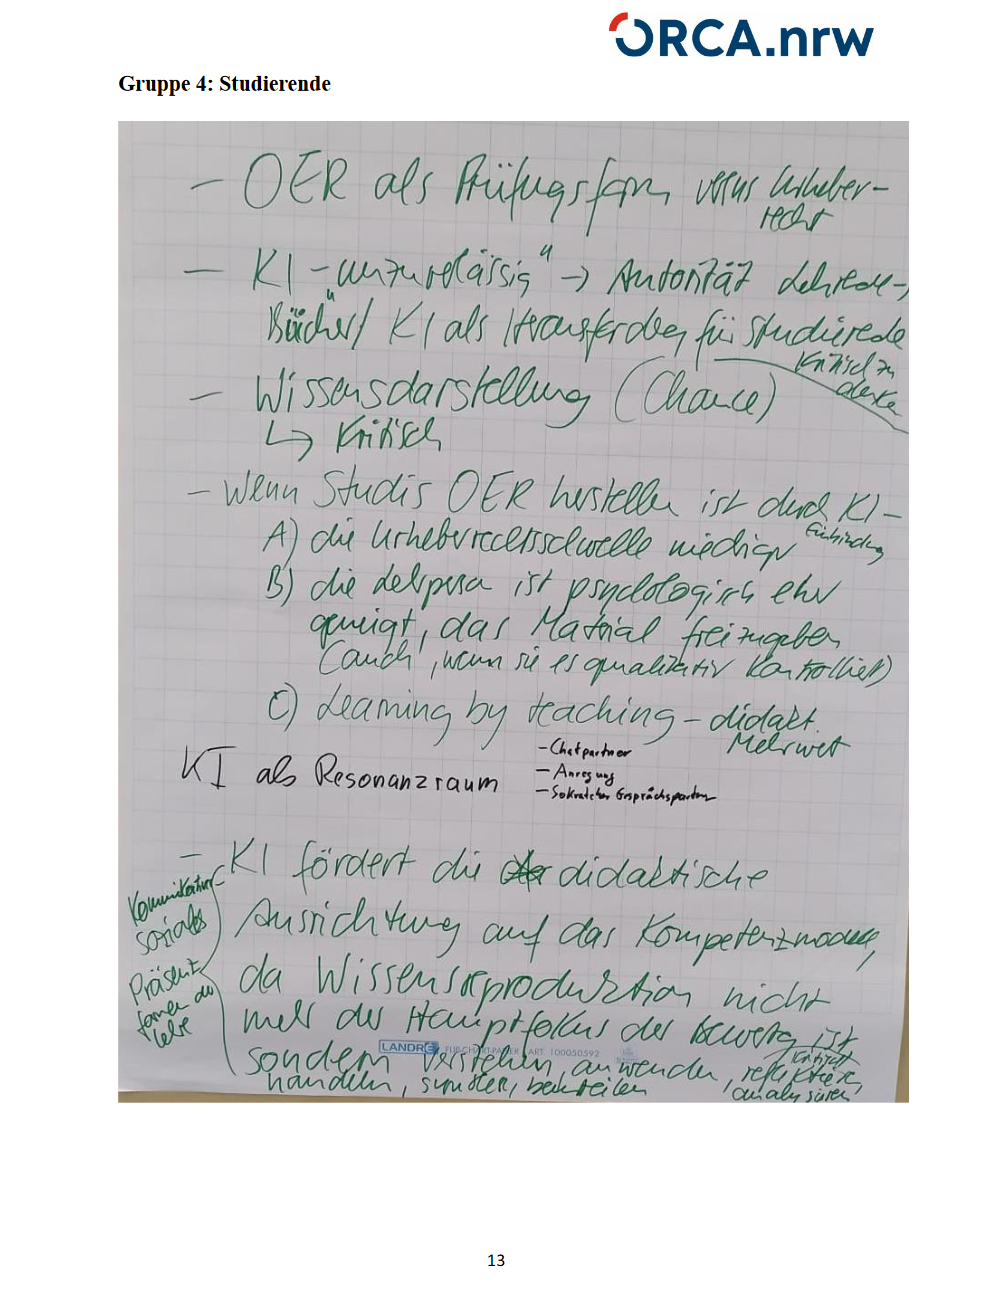 ORCA.nrw
Gruppe 4: Studierende
– OER als Prüfungsform versus Urheber-
recht
– KI – „unzuverlässig“ → Autorität Lehrende
Bücher / KI als für Studierende
Kritisch zu
denken
– Wissensdarstellung (Chance)
↳ Kritisch
– Wenn Studis OER herstellen ist durch KI-
Einbindung
A) die Urheberrechtsschwelle niedriger
B) die Lehrperson ist psychologisch eher
geneigt, das Material freizugeben
(auch, wenn sie es qualitativ kontrolliert)
C) Learning by teaching – didakt.
Mehrwert
KI als Resonanzraum
– Chatpartner
– Anregung
– Sokratischer Gesprächspartner
– KI fördert die didaktische
Ausrichtung auf das Kompetenzmodell,
da Wissensreproduktion nicht
mehr der Hauptfokus der Bewertg ist
sondern verstehen, anwenden, reflektieren,
kritisch
handeln, beurteilen
analysieren
Kommunikation
soziales
Präsenz
formen der
Lehre
LANDRÉ FLIPCHART-PAPIER ART. 100050592
13